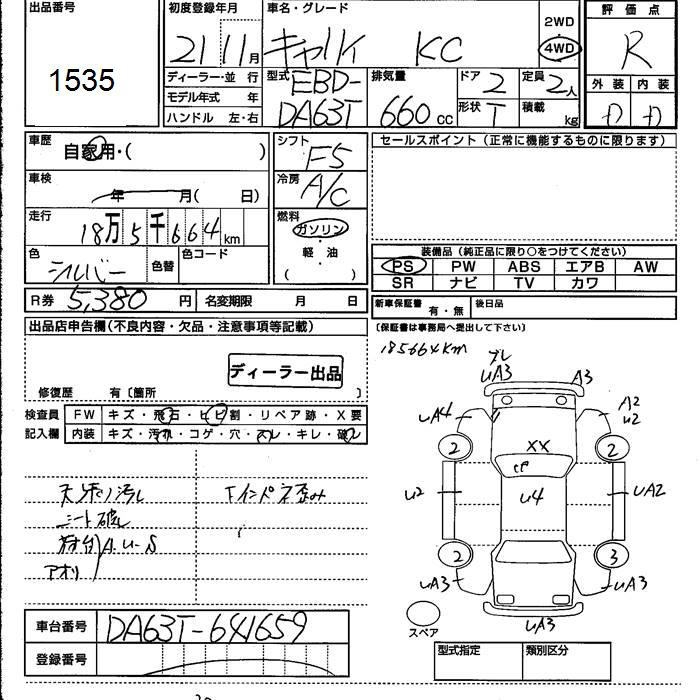 出品番号
1535
初度登録年月
21 11月
車名・グレード
キャリイ KC
2WD
4WD
評価点
R
外装 内装
D D
ディーラー・並行
モデル年式 年
ハンドル 左・右
型式
EBD-
DA63T
排気量
660 cc
ドア 2
形状 T
定員 2人
積載 kg
車歴
自家用・( )
車検
年 月( 日)
走行
18万5千664km
色
シルバー
色替
色コード
R券 5,380 円
名変期限 月 日
シフト
F5
冷房
A/C
燃料
ガソリン
・
軽・油
( )
セールスポイント(正常に機能するものに限ります)
装備品(純正品に限り○をつけてください)
PS PW ABS エアB AW
SR ナビ TV カワ
新車保証書 有・無
後日品
〔保証書は事務局へ提出して下さい〕
出品店申告欄(不良内容・欠品・注意事項等記載)
ディーラー出品
修復歴 有〔箇所 〕
検査員 FW キズ・飛石・ヒビ割・リペア跡・X要
記入欄 内装 キズ・汚れ・コゲ・穴・スレ・キレ・破レ
天張り汚れ
シート破れ
荷台 A.U-S
アオリ
インパネ歪み
185664km
ズレ
UA3
A3
UA4
A2
U2
2
2
XX
U2
U4
UA2
2
3
UA3
UA3
UA3
スペア
車台番号 DA63T-641659
登録番号
型式指定
類別区分